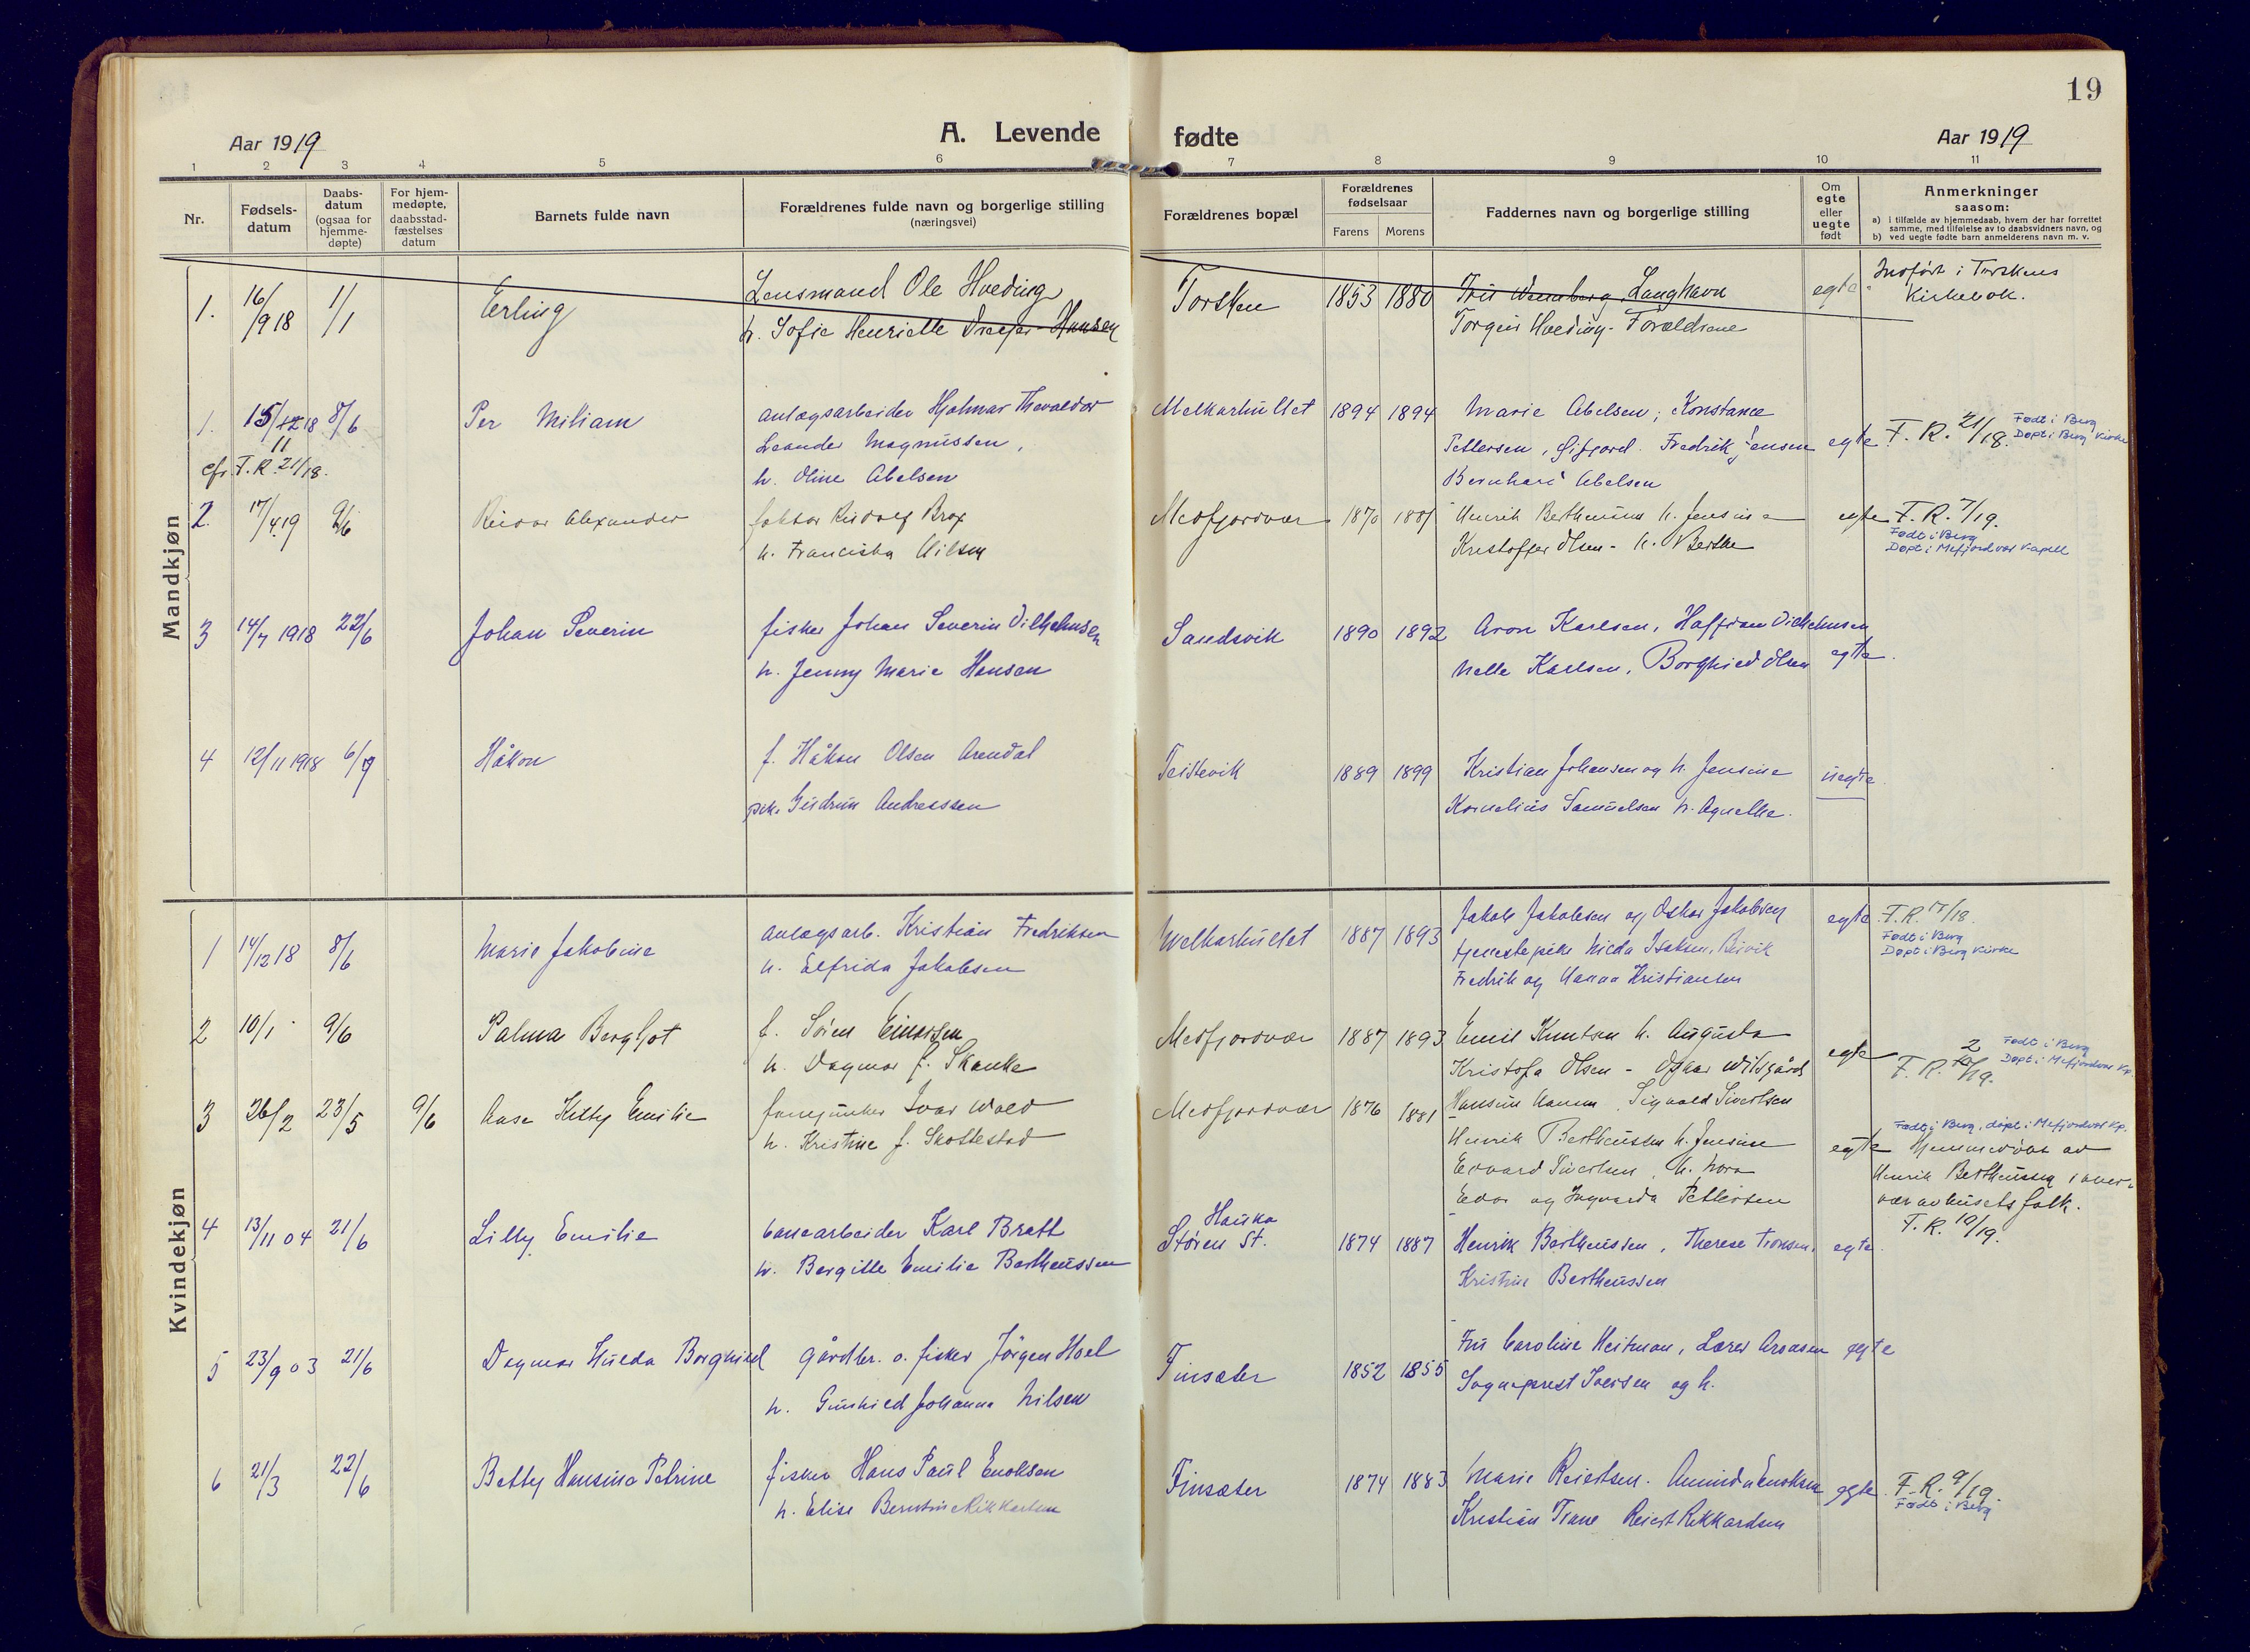 19
Aar 1919
A. Levende fødte
Aar 1919
1 2 3 4 5 6 7 8 9 10 11
Nr.
Fødsels-
datum
Daabs-
datum
(ogsaa for
hjemme-
døpte)
For hjem-
medøpte,
daabsstad-
fæstelses
datum
Barnets fulde navn
Forældrenes fulde navn og borgerlige stilling
(næringsvei)
Forældrenes bopæl
Forældrenes
fødselsaar
Farens Morens
Faddernes navn og borgerlige stilling
Om
egte
eller
uegte
født
Anmerkninger
saasom:
a) i tilfælde av hjemmedaab, hvem der har forrettet
samme, med tilføielse av to daabsvidners navn, og
b) ved uegte fødte barn anmelderens navn m. v.
Mandkjøn
1. 16/9 18 1/1 Erling Lensmand Ole Hveding Torsken 1853 1880 Langhavn egte Indført i Torskens
h. Sofie Henriette Hansen Torgeir Hveding - Forældrene Kirkebok.
1. 15/12 18 8/6 Per Miliam anlægsarbeider Hjalmar Thevaldor Melkarhullet 1894 1894 Marie Abelsen, Konstance
11
cfr. F. R. 21/18.
Leander Magnussen, Pettersen, Gifjord. Fredrik Jensen egte F. R. 21/18. Født i Berg
Døpt i Berg Kirke
h. Oline Abelsen Bernhard Abelsen
2. 17/4 19 9/6 Reidar Alexander faktor Rudolf Brox Medfjordvær 1870 1881 Henrik Bertheussen h. Jensine egte F. R. 7/19.
h. Franciska Nilsen Kristoffer Olsen - h. Berthe Født i Berg
Døpt i Mefjordvær Kapell
3 14/7 1918 22/6 Johan Severin fisker Johan Severin Vilhelmsen Sandsvik 1890 1892 Aron Karlsen, Vilhelmsen
h. Jenny Marie Hansen Nelle Karlsen, Borghild Olsen egte.
4 12/11 1918 6/9 Håkon f. Håkon Olsen Arendal Teistevik 1889 1899 Kristian Johansen og h. Jensine uegte
pike Gudrun Andreassen Kornelius Samuelsen h. Agnethe.
Kvindekjøn
1 14/12 18 8/6 Marie Jakobine anlægsarb. Kristian Fredriksen Melkarhullet 1887 1893 Jakob Jakobsen og Oskar Jakobsen egte F. R. 17/18.
h. Elfrida Jakobsen tjenestepike Isaksen, Født i Berg
Døpt i Berg Kirke
Fredrik og Hanna Kristiansen
2 10/1 9/6 Palma Bergljot f. Søren Einersen Medfjordvær 1887 1893 Emil Knutsen h. Augusta egte Født i Berg
h. Dagmar f. Skanke Kristofa Olsen - Oskar Wilsgård F. R. 2/19. Døpt i Mefjordvær Kp.
3 26/2 23/5 9/6 Aase Kitty Emilie Ivar Wold Medfjordvær 1876 1881 Hansine Hansen, Sigvald Sivertsen
h. Kristine f. Skottestad Henrik Bertheussen h. Jensine egte Født i Berg, døpt i Mefjordvær Kp.
Edvard Sivertsen, h. Nora Hjemmedøbt av
Edor og Ingvarda Pettersen Henrik Bertheussen i over-
vær av husets folk.
F. R. 10/19.
4 13/11 04 21/6 Lilly Emilie banearbeider Karl Bratt Hauka
Støren St. 1874 1887 Henrik Bertheussen, Therese Tronsen, egte.
h. Bergitte Emilie Bertheussen Kristine Bertheussen
5 23/9 03 21/6 Dagmar Hulda Borghild gårdbr. o. fisker Jörgen Hoel Finsæter 1852 1855 Fru Caroline Heitman, Lærer egte
h. Gunhild Johanna Nilsen Sogneprest Iversen og h.
6 21/3 22/6 Betty Hansine Petrine fisker Hans Paul Enoksen Finsæter 1874 1883 Marie Reiertsen. Enoksen egte. F. R. 9/19.
h. Elise Berntine Rikkardsen Kristian Trane Reiert Rikkardsen Født i Berg